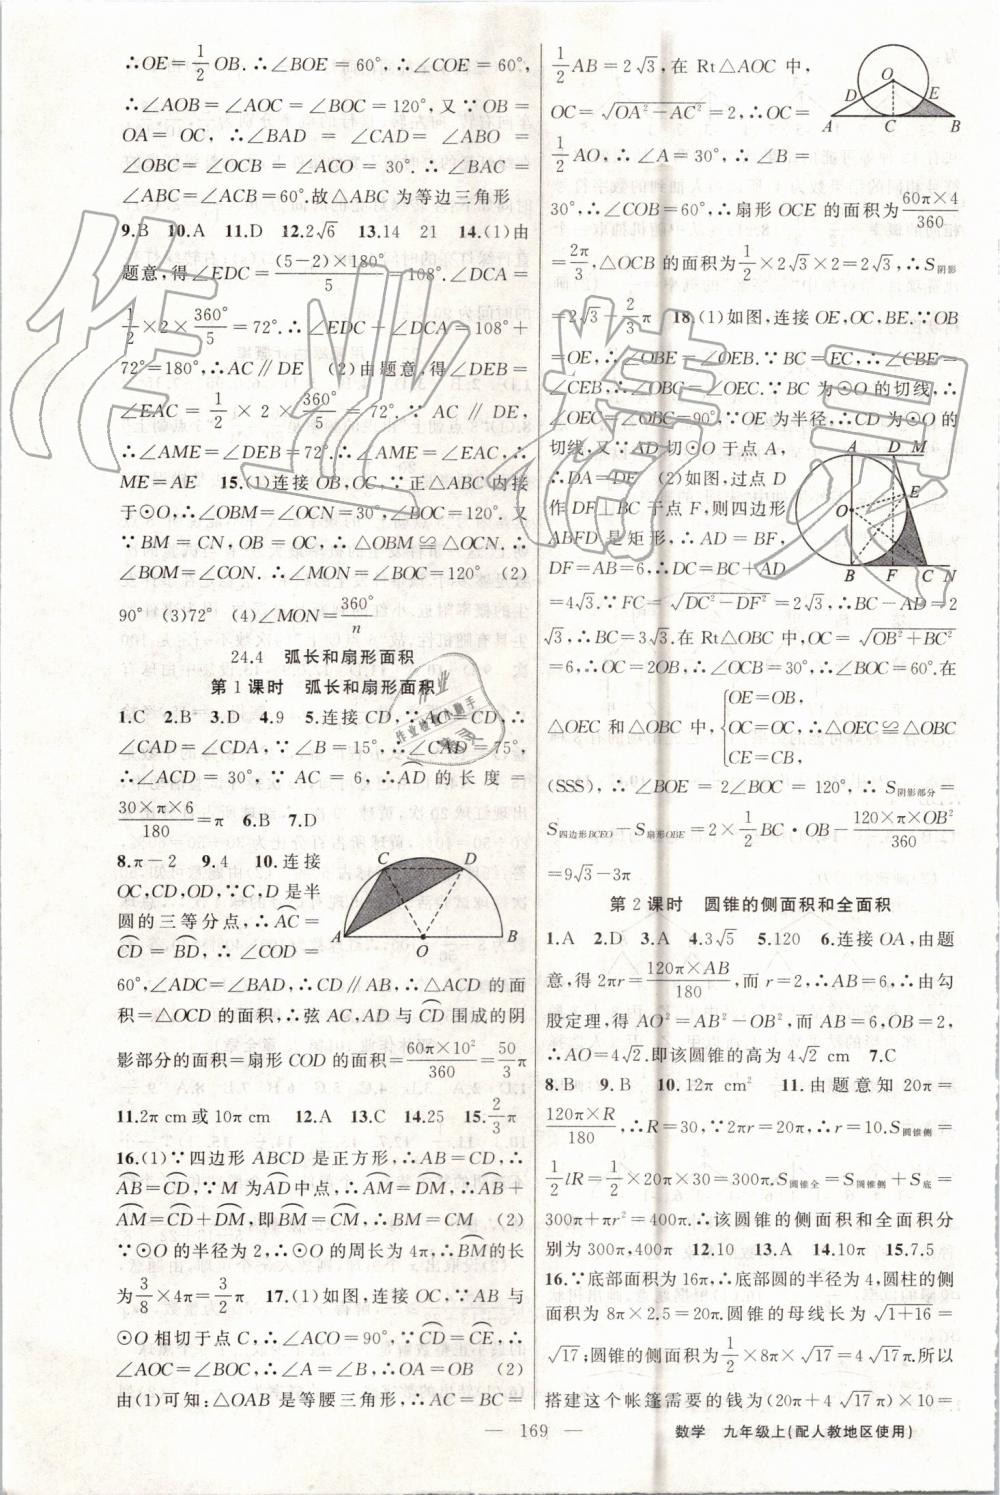 ∴OE=1/2 OB.∴∠BOE=60°,∴∠COE=60°,
∴∠AOB=∠AOC=∠BOC=120°,又∵OB=
OA=OC,∴∠BAD=∠CAD=∠ABO=
∠OBC=∠OCB=∠ACO=30°.∴∠BAC=
∠ABC=∠BCA=60°.故△ABC为等边三角形
9.B 10.A 11.D 12.2√6 13.14 21 14.(1)由
题意,得∠EDC=(5-2)×180°/5=108°.∠DCA=
1/2×2×360°/5=72°.∴∠EDC+∠DCA=108°+
72°=180°,∴AC∥DE (2)由题意,得∠DEB=
∠EAC=1/2×2×360°/5=72°.∵AC∥DE,
∴∠AME=∠DEB=72°.∴∠AME=∠EAC,∴
ME=AE 15.(1)连接OB,OC,∵正△ABC内接
于⊙O,∴∠OBM=∠OCN=30°,∠BOC=120°.又
∵BM=CN,OB=OC,∴△OBM≌△OCN.∴
∠BOM=∠CON.∴∠MON=∠BOC=120° (2)
90° (3)72° (4)∠MON=360°/n
24.4 弧长和扇形面积
第1课时 弧长和扇形面积
1.C 2.B 3.D 4.9 5.连接CD,∵AC=CD,∴
∠CAD=∠CDA,∵∠B=15°,∴∠CAD=75°,
∴∠ACD=30°,∵AC=6,∴⌒AD的长度=
30×π×6/180=π 6.B 7.D
8.π-2 9.4 10.连接
OC,CD,OD,∵C,D是半
圆的三等分点,∴⌒AC=
⌒CD=⌒BD,∴∠COD=
60°,∠ADC=∠BAD,∴CD∥AB,∴△CDA的面
积=△OCD的面积,∴弦AC,AD与⌒CD围成的阴
影部分的面积=扇形COD的面积=60π×10²/360=50/3 π
11.2π cm或10π cm 12.A 13.C 14.25 15.2/3 π
16.(1)∵四边形ABCD是正方形,∴AB=CD,∴
⌒AB=⌒CD,∵M为⌒AD中点,∴⌒AM=⌒DM,∴⌒AB+
⌒AM=⌒CD+⌒DM,即⌒BM=⌒CM,∴BM=CM (2)
∵⊙O的半径为2,∴⊙O的周长为4π,∴⌒BM的长
为3/8×4π=3/2π 17.(1)如图,连接OC,∵AB与
⊙O相切于点C,∴∠ACO=90°,∵⌒CD=⌒CE,∴
∠AOC=∠BOC,∴∠A=∠B,∴OA=OB (2)
由(1)可知:△OAB是等腰三角形,∴AC=BC=
1/2 AB=2√3,在Rt△AOC中,
OC=√(OA²-AC²)=2,∴OC=
1/2 AO,∴∠A=30°,∴∠B=
30°,∴∠COB=60°,∴扇形OCE的面积为60π×4/360
=2π/3,△OCB的面积为1/2×2√3×2=2√3,∴S阴影
=2√3-2/3π 18.(1)如图,连接OE,OC,BE.∵OB
=OE,∴∠OBE=∠OEB.∵BC=EC,∴∠CBE=
∠CEB,∴∠OBC=∠OEC.∵BC为⊙O的切线,∴
∠OEC=∠OBC=90°,∵OE为半径,∴CD为⊙O的
切线,又∵AD切⊙O于点A,
∴DA=DE (2)如图,过点D
作DF⊥BC于点F,则四边形
ABFD是矩形,∴AD=BF,
DF=AB=6,∴DC=BC+AD
=4√3.∵FC=√(DC²-DF²)=2√3,∴BC-AD=2
√3,∴BC=3√3.在Rt△OBC中,OC=√(OB²+BC²)
=6,∴OC=2OB,∴∠OCB=30°,∴∠BOC=60°.在
△OEC和△OBC中,{OE=OB,
OC=OC,∴△OEC≌△OBC
CE=CB
(SSS),∴∠BOE=2∠BOC=120°,∴S阴影部分=
S四边形BCEO-S扇形OBE=2×1/2 BC·OB-120×π×OB²/360
=9√3-3π
第2课时 圆锥的侧面积和全面积
1.A 2.D 3.A 4.3√5 5.120 6.连接OA,由题
意,得2πr=120π×AB/180,而r=2,∴AB=6,∴由勾
股定理,得AO²=AB²-OB²,而AB=6,OB=2,
∴AO=4√2.即该圆锥的高为4√2 cm 7.C
8.B 9.B 10.12π cm² 11.由题意知20π=
120π×R/180,∴R=30,∵2πr=20π,∴r=10.S圆锥侧=
1/2 lR=1/2×20π×30=300π.S圆锥全=S圆锥侧+S底=
300π+πr²=400π.∴该圆锥的侧面积和全面积分
别为300π,400π 12.10 13.A 14.10π 15.7.5
16.∵底部面积为16π,∴底部圆的半径为4,圆柱的侧
面积为8π×2.5=20π.圆锥的母线长为√(1+16)=
√17;圆锥的侧面积为1/2×8π×√17=4√17π.所以
搭建这个帐篷需要的钱为(20π+4√17π)×10=
— 169 — 数学 九年级上(配人教地区使用)